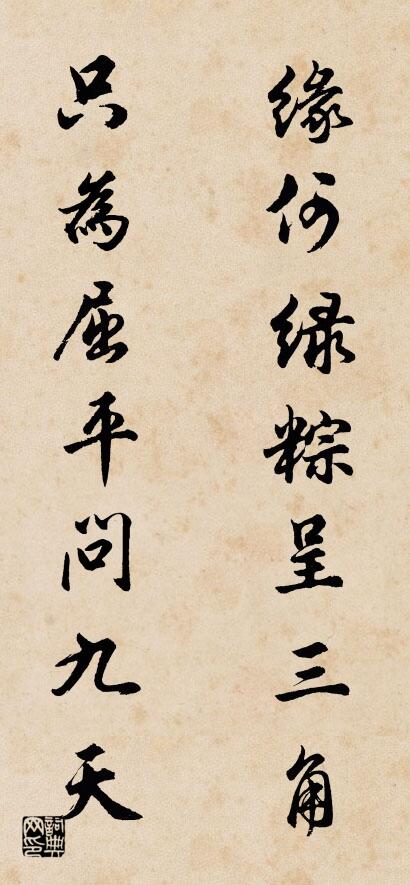 缘何绿粽呈三角
只為屈平問九天
詞典网印